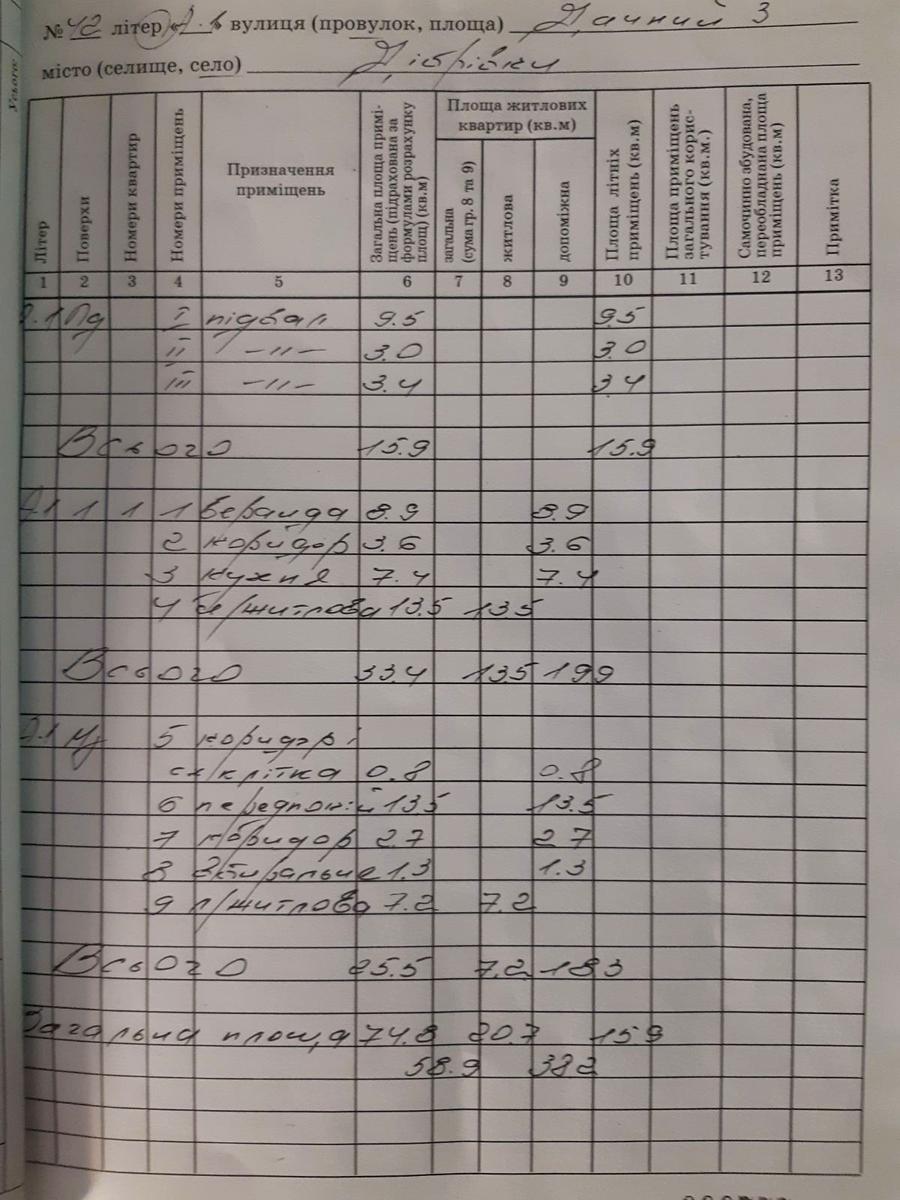 № 42 літер А-1 вулиця (провулок, площа) Дачний 3
місто (селище, село) Дібрівки
Літер Поверхи Номери квартир Номери приміщень Призначення приміщень Загальна площа приміщень (підрахована за формулами розрахунку площ) (кв.м) Площа житлових квартир (кв.м) загальна (сума гр. 8 та 9) житлова допоміжна Площа літніх приміщень (кв.м) Площа приміщень загального користування (кв.м.) Самочинно збудована, переобладнана площа приміщень (кв.м) Примітка
1 2 3 4 5 6 7 8 9 10 11 12 13
А.1 Пд I підвал 9.5 9.5
II -〃- 3.0 3.0
III -〃- 3.4 3.4
Всього 15.9 15.9
А.1 1 1 1 веранда 8.9 8.9
2 коридор 3.6 3.6
3 кухня 7.4 7.4
4 житлова 13.5 13.5
Всього 33.4 13.5 19.9
А.1 М 5 коридор і
сх/клітка 0.8 0.8
6 передпокій 13.5 13.5
7 коридор 2.7 2.7
8 вбиральне 1.3 1.3
9 п/житлова 7.2 7.2
Всього 25.5 7.2 183
Загальна площа 74.8 20.7 15.9
58.9 382